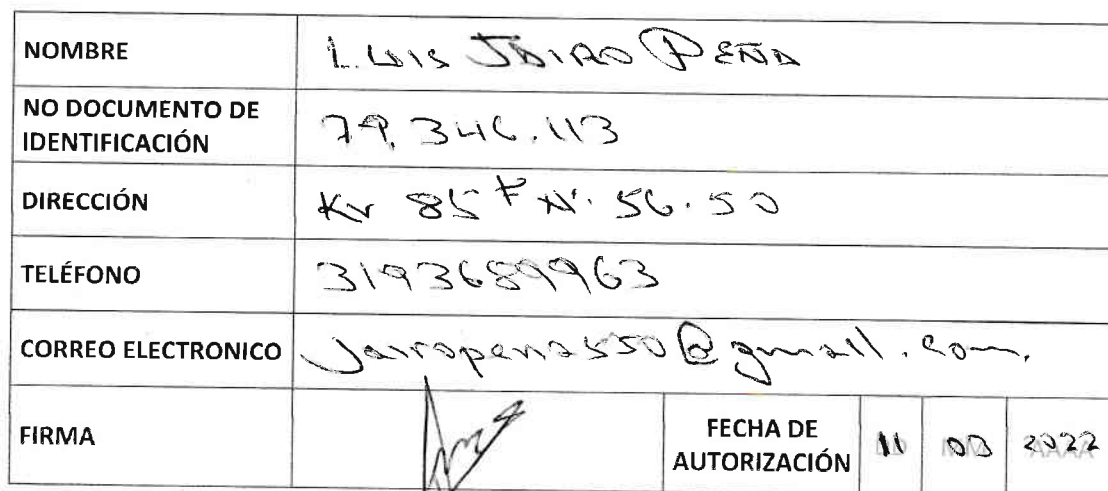 NOMBRE LUIS JAIRO PEÑA
NO DOCUMENTO DE
IDENTIFICACIÓN 79.346.113
DIRECCIÓN Kr 85 N. 56.50
TELÉFONO 3193689963
CORREO ELECTRONICO Jairopena550@gmail.com.
FIRMA FECHA DE
AUTORIZACIÓN 11 03 2022